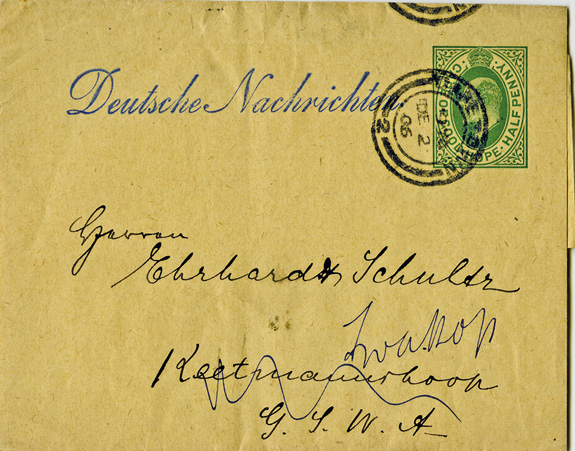 Deutsche Nachrichten.
GOOD HOPE · HALFPENNY ·
CAPE TOWN
DE 2
06
2
Herren
Ehrhardt Schultz
Swakop
Keetmannshoop
G. S. W. A